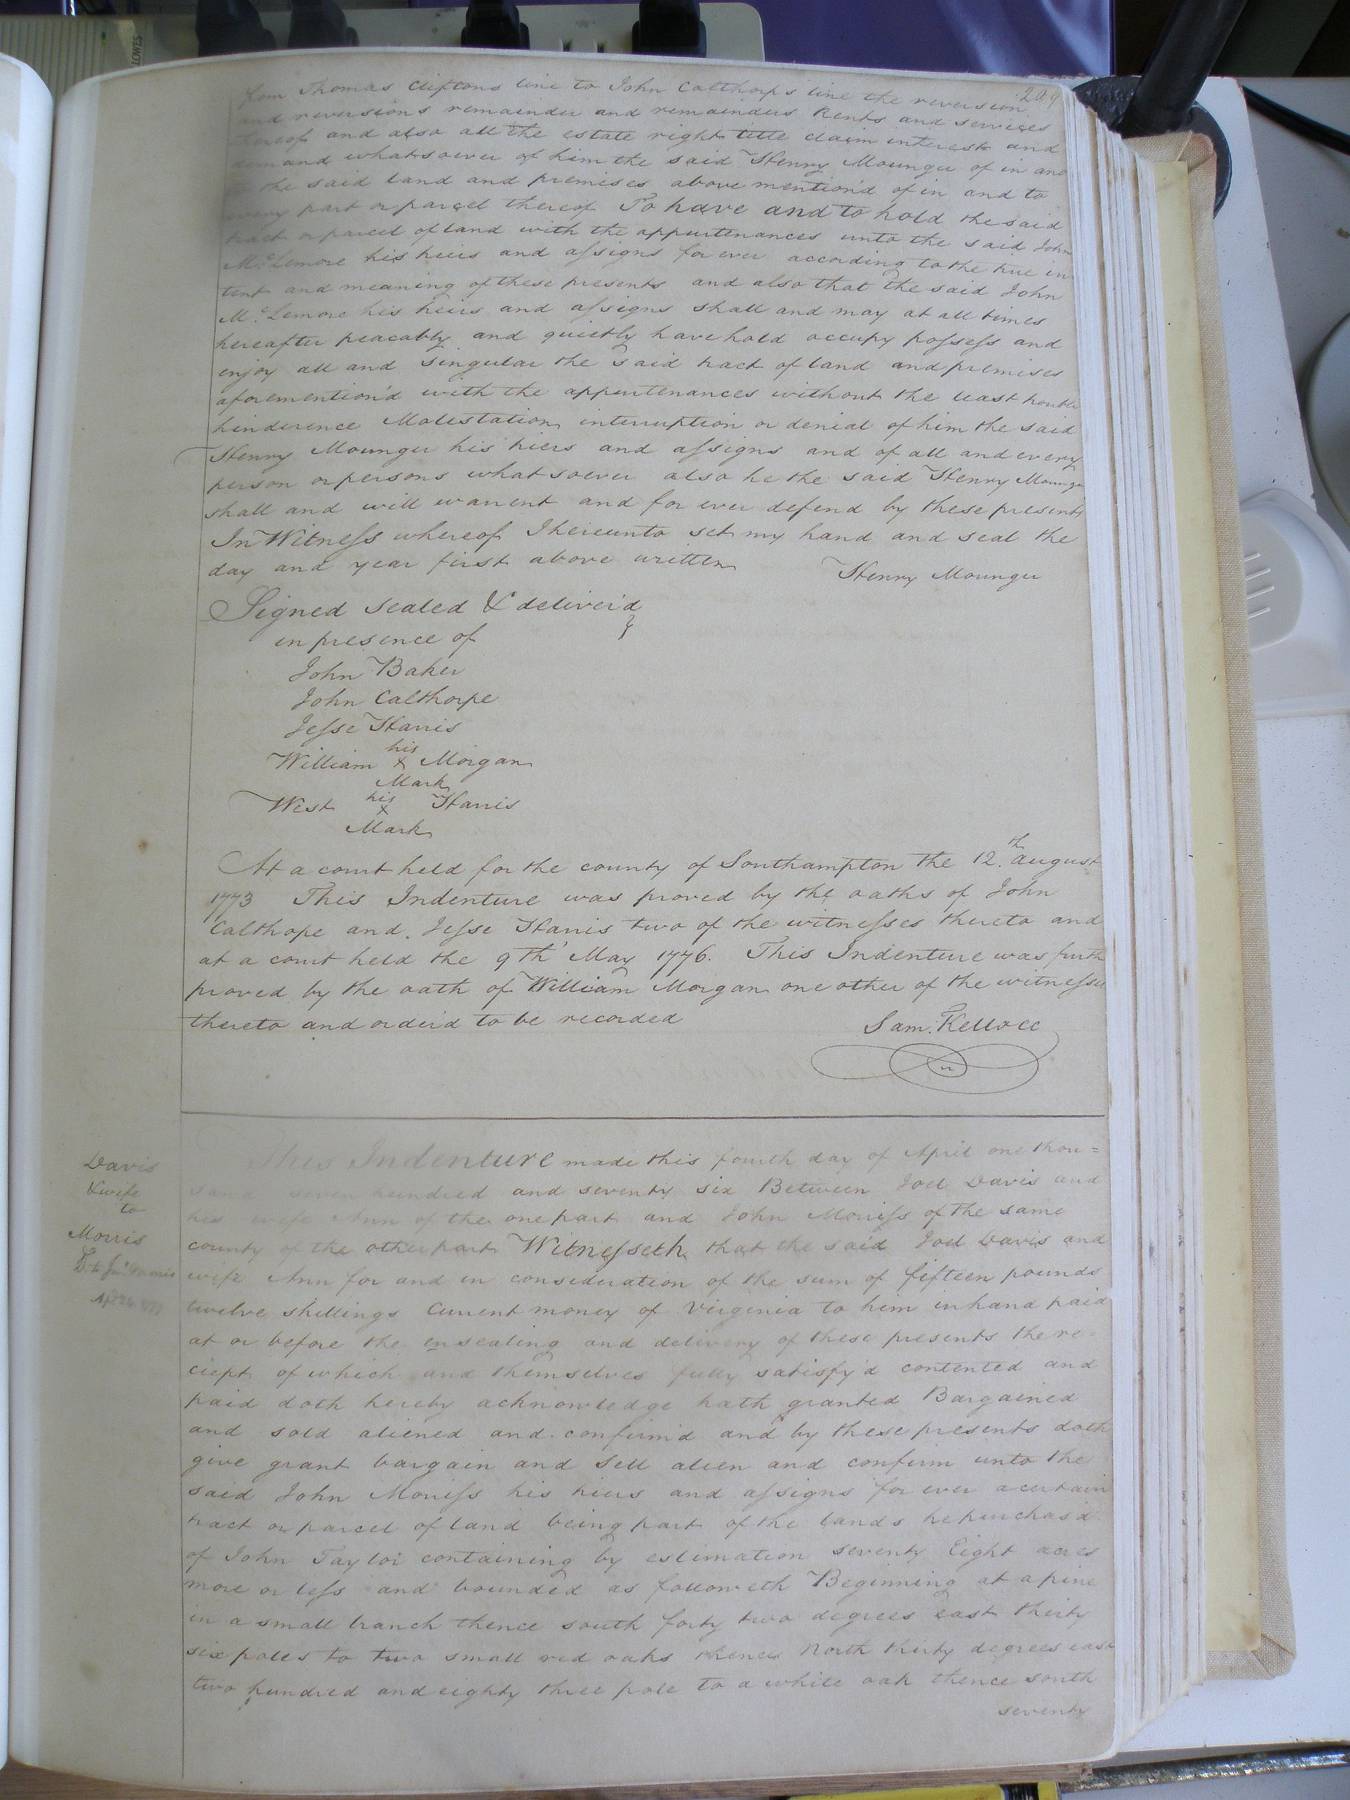 LOWES
209
from Thomas Cliftons line to John Calthorps line the reversion
and reversions remainder and remainders Rents and services
thereof and also all the estate right title claim interest and
demand whatsoever of him the said Henry Mounger of in and
to the said land and premises above mention'd of in and to
every part or parcel thereof To have and to hold the said
tract or parcel of land with the appurtenances unto the said John
Mc.Lemore his heirs and assigns for ever according to the true in
tent and meaning of these presents and also that the said John
Mc.Lemore his heirs and assigns shall and may at all times
hereafter peacably and quietly have hold occupy possess and
enjoy all and singular the said tract of land and premises
aforemention'd with the appurtenances without the least trouble
hinderence Molestation interruption or denial of him the said
Henry Mounger his hiers and assigns and of all and every
person or persons whatsoever also he the said Henry Mounger
shall and will warrent and for ever defend by these presents
In Witness whereof I hereunto set my hand and seal the
day and year first above written Henry Mounger
Signed sealed & deliver'd
in presence of
John Baker
John Calthorpe
Jesse Harris
his
William x Morgan
Mark
West his x Harris
Mark
At a court held for the county of Southampton the 12.th august
1773 This Indenture was proved by the oaths of John
Calthope and Jesse Harris two of the witnesses thereto and
at a court held the 9th May 1776. This Indenture was furth
proved by the oath of William Morgan one other of the witnesses
thereto and order'd to be recorded Sam. Kello CC
Davis
& wife
to
Morris
This Indenture made this fourth day of April one thou=
sand seven hundred and seventy six Between Joel Davis and
his wife Ann of the one part and John Morriss of the same
county of the other part Witnesseth that the said Joel Davis and
wife Ann for and in consideration of the sum of fifteen pounds
twelve shillings Current money of Virginia to him in hand paid
at or before the ensealing and delivery of these presents the re=
ciept of which and themselves fully satisfy'd contented and
paid doth hereby acknowledge hath granted Bargained
and sold aliened and confirm'd and by these presents doth
give grant bargain and sell alien and confirm unto the
said John Morriss his hiers and assigns for ever a certain
tract or parcel of land being part of the lands he purchas'd
of John Taylor containing by estimation seventy Eight acres
more or less and bounded as followeth Beginning at a pine
in a small branch thence south forty two degrees east thirty
six poles to two small red oaks thence North thirty degrees east
two hundred and eighty three pole to a white oak thence south
seventy